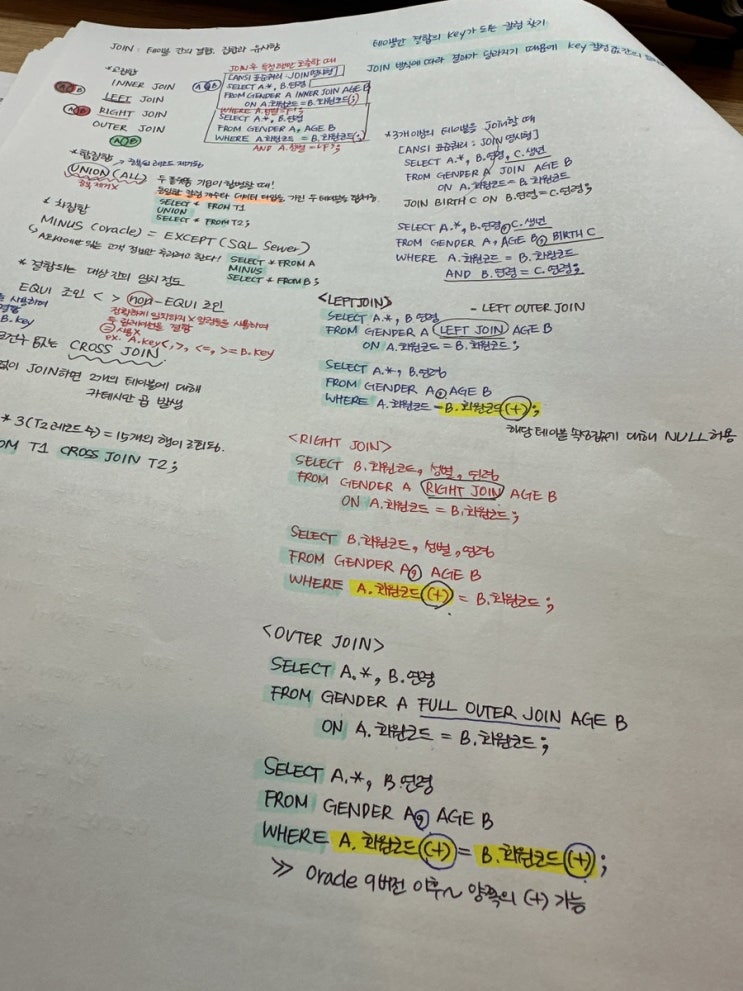 JOIN : 테이블 간의 결합, 집합과 유사함
테이블만 결합의 key가 되는 컬럼 찾기
JOIN 방식에 따라 결과가 달라지기 때문에 key 컬럼 값 간의
*교집합
INNER JOIN
LEFT JOIN
RIGHT JOIN
OUTER JOIN
A B
A B
A B
A B
JOIN 후 특정 조건만 호출할 때
[ANSI 표준쿼리 : JOIN 명시형]
SELECT A.*, B.연령
FROM GENDER A INNER JOIN AGE B
ON A.회원코드 = B.회원코드(;)
WHERE A.성별='F';
SELECT A.*, B.연령
FROM GENDER A, AGE B
WHERE A.회원코드 = B.회원코드(;)
AND A.성별='F';
*합집합
→ 중복된 레코드 제거됨
UNION (ALL)
중복 제거 X
동일한 컬럼 개수와 데이터 타입을 가진 두 테이블을
SELECT * FROM T1
UNION
SELECT * FROM T2;
* 차집합
MINUS (oracle) = EXCEPT (SQL Server)
SELECT * FROM A
MINUS
SELECT * FROM B;
* 결합되는 대상 간의 일치 정도
EQUI 조인 < > non-EQUI 조인
정확하게 일치하지 X 컬럼들을 사용하여
두 테이블을 결합
= 사용 X
ex. A.key <, >, <=, >= B.key
B.key
없는 CROSS JOIN
없이 JOIN하면 2개의 테이블에 대해
카테시안 곱 발생
* 3(T2 레코드 수) = 15개의 행이 조회됨.
OM T1 CROSS JOIN T2;
*3개 이상의 테이블을 Join할 때
[ANSI 표준쿼리 : JOIN 명시형]
SELECT A.*, B.연령, C.생년
FROM GENDER A JOIN AGE B
ON A.회원코드 = B.회원코드
JOIN BIRTH C ON B.연령 = C.연령;
SELECT A.*, B.연령, C.생년
FROM GENDER A, AGE B, BIRTH C
WHERE A.회원코드 = B.회원코드
AND B.연령 = C.연령;
<LEFT JOIN>
- LEFT OUTER JOIN
SELECT A.*, B.연령
FROM GENDER A LEFT JOIN AGE B
ON A.회원코드 = B.회원코드;
SELECT A.*, B.연령
FROM GENDER A, AGE B
WHERE A.회원코드 = B.회원코드(+);
해당 테이블 쪽 대해 NULL 허용
<RIGHT JOIN>
SELECT B.회원코드, 성별, 연령
FROM GENDER A RIGHT JOIN AGE B
ON A.회원코드 = B.회원코드;
SELECT B.회원코드, 성별, 연령
FROM GENDER A, AGE B
WHERE A.회원코드(+) = B.회원코드;
<OUTER JOIN>
SELECT A.*, B.연령
FROM GENDER A FULL OUTER JOIN AGE B
ON A.회원코드 = B.회원코드;
SELECT A.*, B.연령
FROM GENDER A, AGE B
WHERE A.회원코드(+) = B.회원코드(+);
>> oracle 9버전 이후~ 양쪽의 (+) 가능